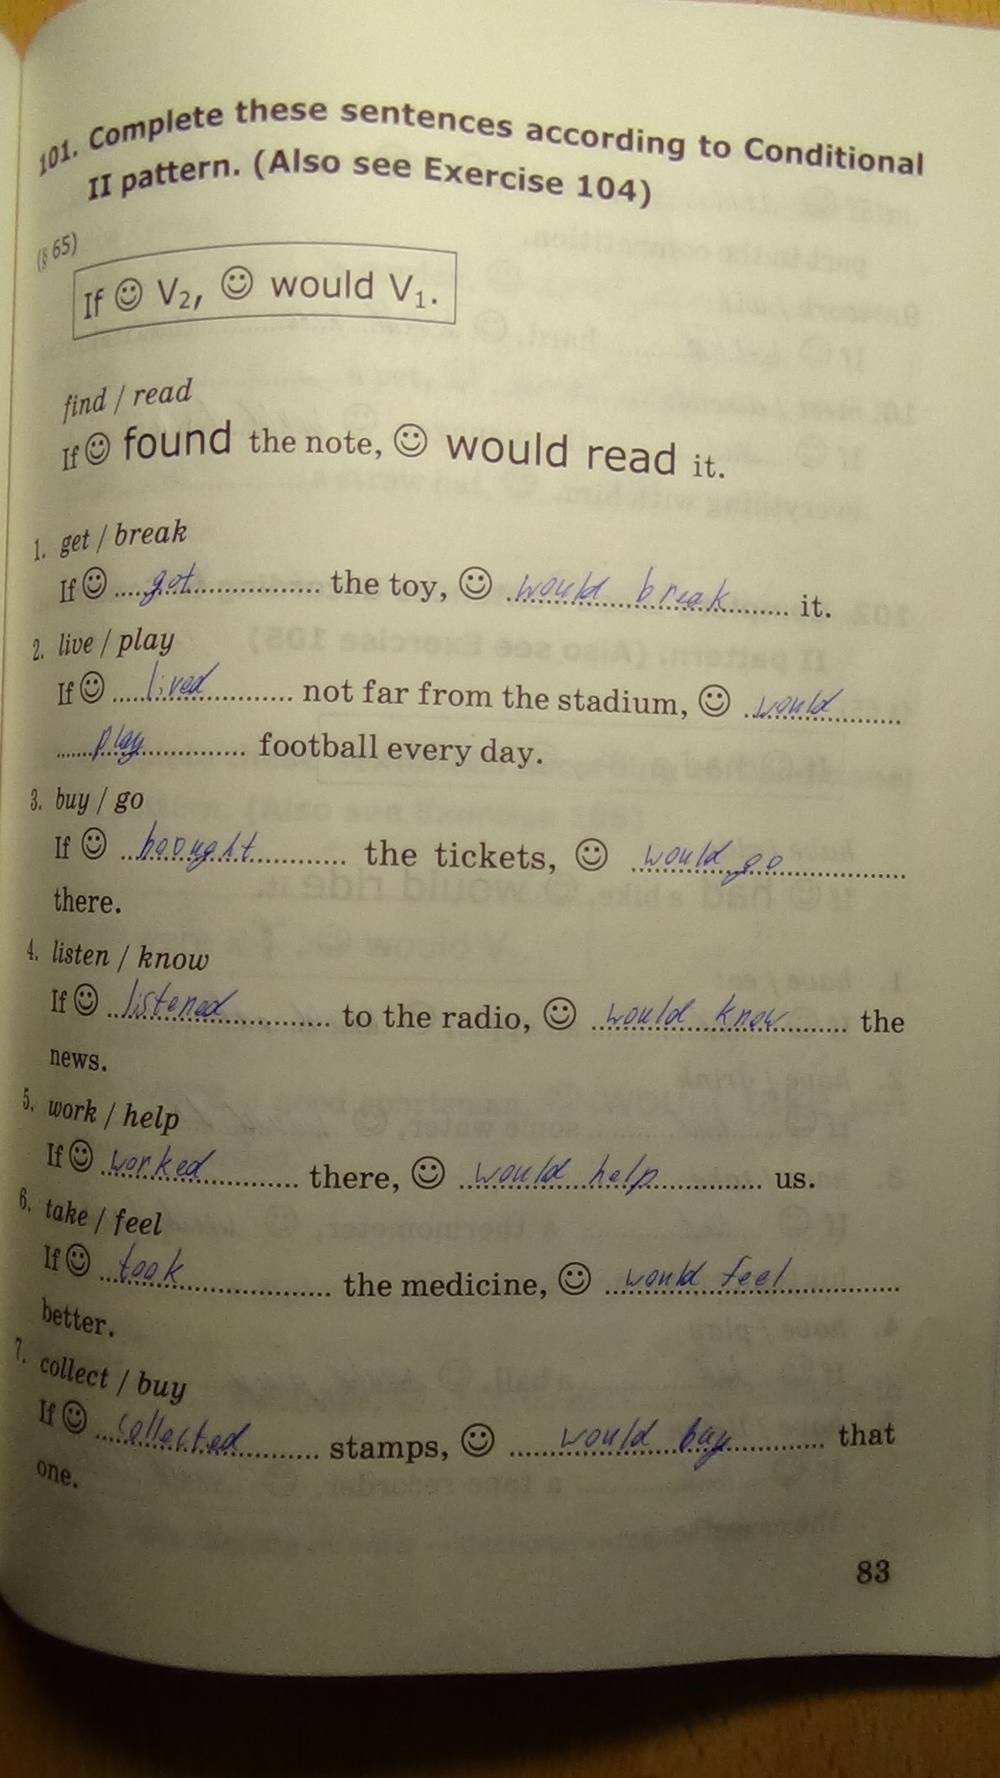 101. Complete these sentences according to Conditional
II pattern. (Also see Exercise 104)
(§ 65)
If ☺ V₂, ☺ would V₁.
find / read
If ☺ found the note, ☺ would read it.
1. get / break
If ☺ got the toy, ☺ would break it.
2. live / play
If ☺ lived not far from the stadium, ☺ would
play football every day.
3. buy / go
If ☺ boought the tickets, ☺ would go
there.
4. listen / know
If ☺ listened to the radio, ☺ would know the
news.
5. work / help
If ☺ worked there, ☺ would help us.
6. take / feel
If ☺ took the medicine, ☺ would feel
better.
7. collect / buy
If ☺ collected stamps, ☺ would buy that
one.
83